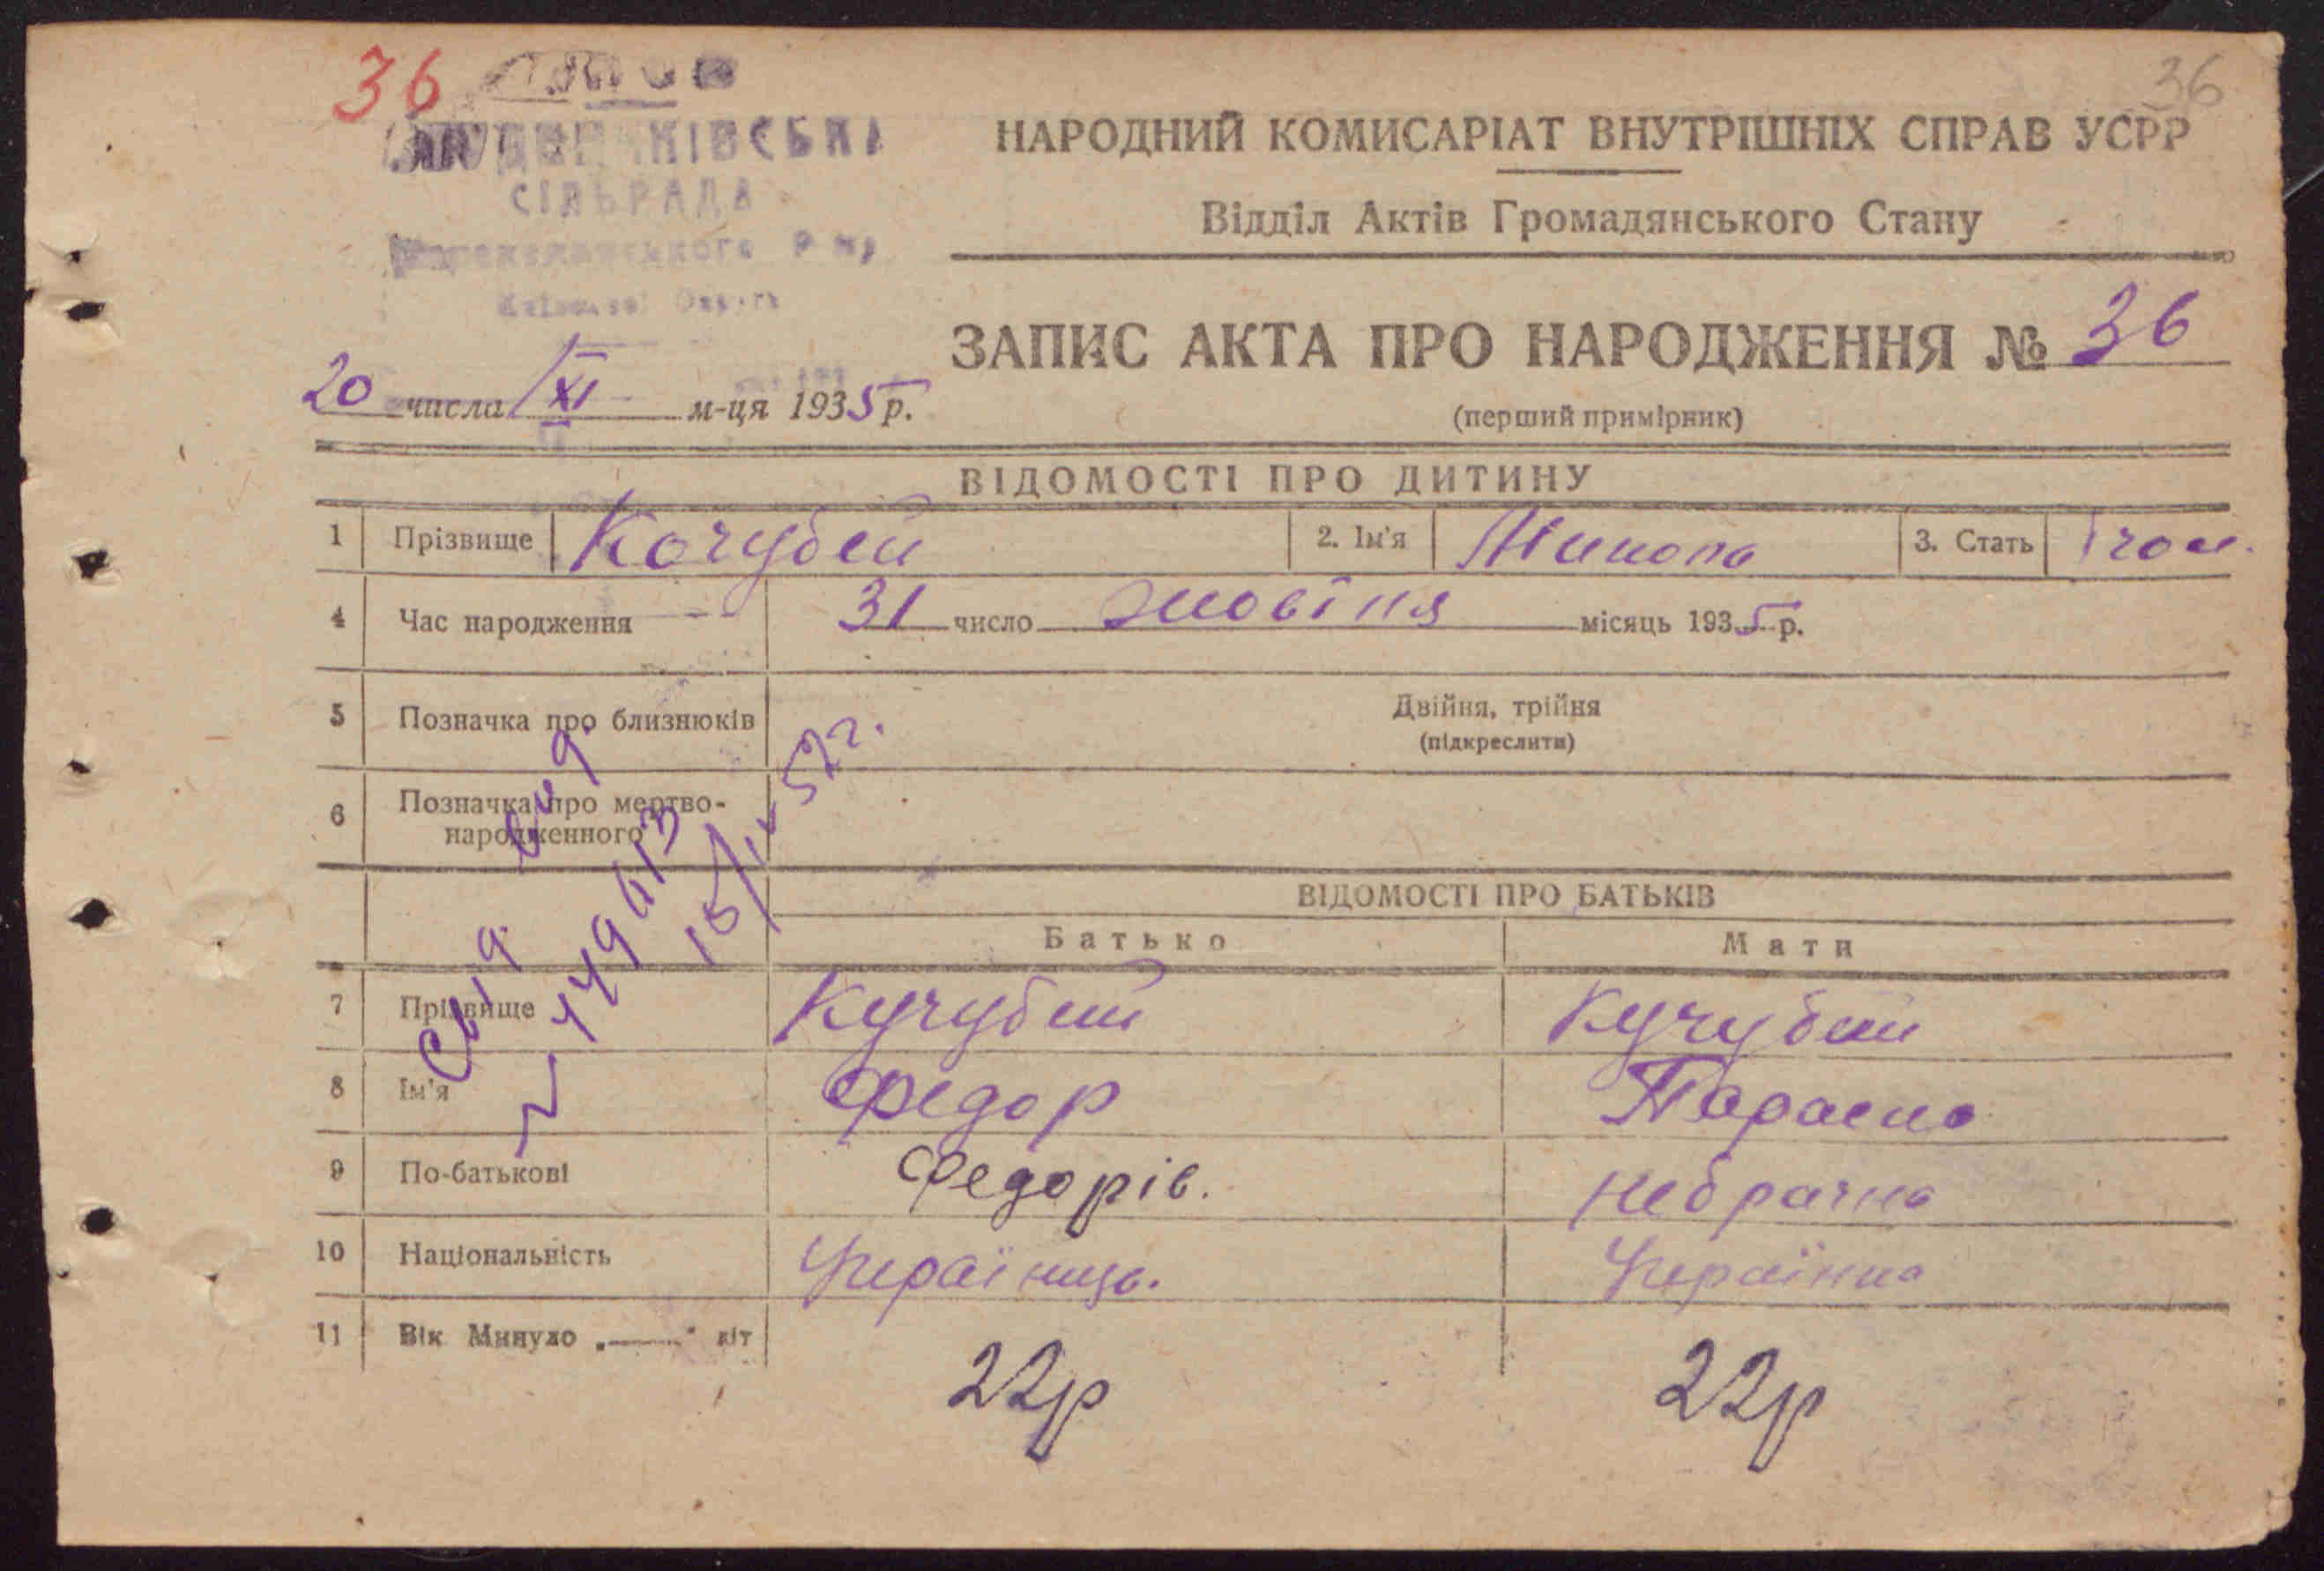 36
36
СІЛЬРАДА
НАРОДНИЙ КОМИСАРІАТ ВНУТРІШНІХ СПРАВ УСРР
Відділ Актів Громадянського Стану
ЗАПИС АКТА ПРО НАРОДЖЕННЯ № 36
20 числа XI м-ця 1935 р.
(перший примірник)
ВІДОМОСТІ ПРО ДИТИНУ
1 Прізвище Кочубей 2. Ім'я Микола 3. Стать чол.
4 Час народження 31 число жовтня місяць 1935 р.
5 Позначка про близнюків Двійня, трійня
(підкреслити)
6 Позначка про мертво-
народженного
ВІДОМОСТІ ПРО БАТЬКІВ
Батько Мати
7 Прізвище Кучубей Кучубей
8 Ім'я Федор Параска
9 По-батькові Федорів.
10 Національність Українець. Українка
11 Вік Минуло „——" літ 22р 22р